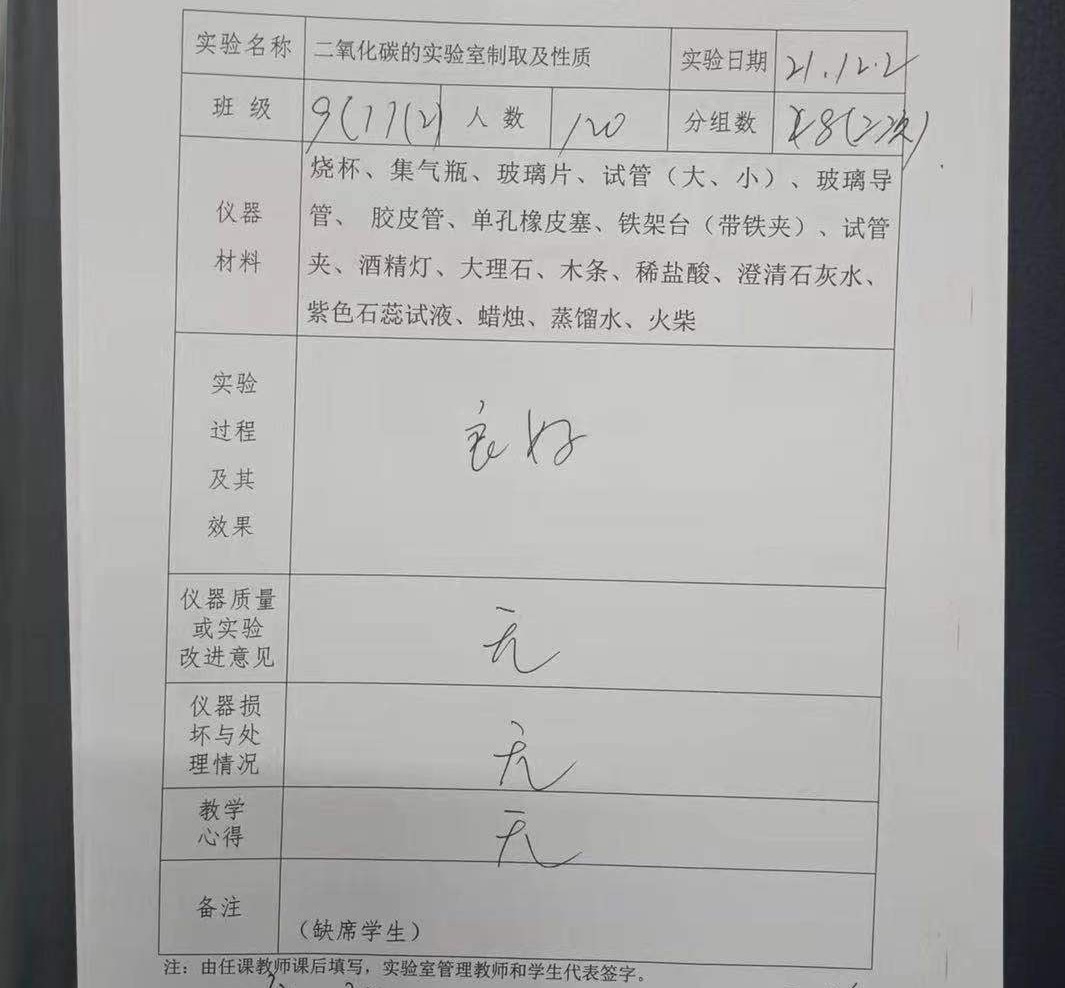 实验名称 二氧化碳的实验室制取及性质 实验日期 21.12.2
班 级 9(1)(2) 人 数 120 分组数 8(2次)
仪器
材料
烧杯、集气瓶、玻璃片、试管（大、小）、玻璃导
管、 胶皮管、单孔橡皮塞、铁架台（带铁夹）、试管
夹、酒精灯、大理石、木条、稀盐酸、澄清石灰水、
紫色石蕊试液、蜡烛、蒸馏水、火柴
实验
过程
及其
效果
良好
仪器质量
或实验
改进意见
无
仪器损
坏与处
理情况
无
教学
心得
无
备注
（缺席学生）
注：由任课教师课后填写，实验室管理教师和学生代表签字。